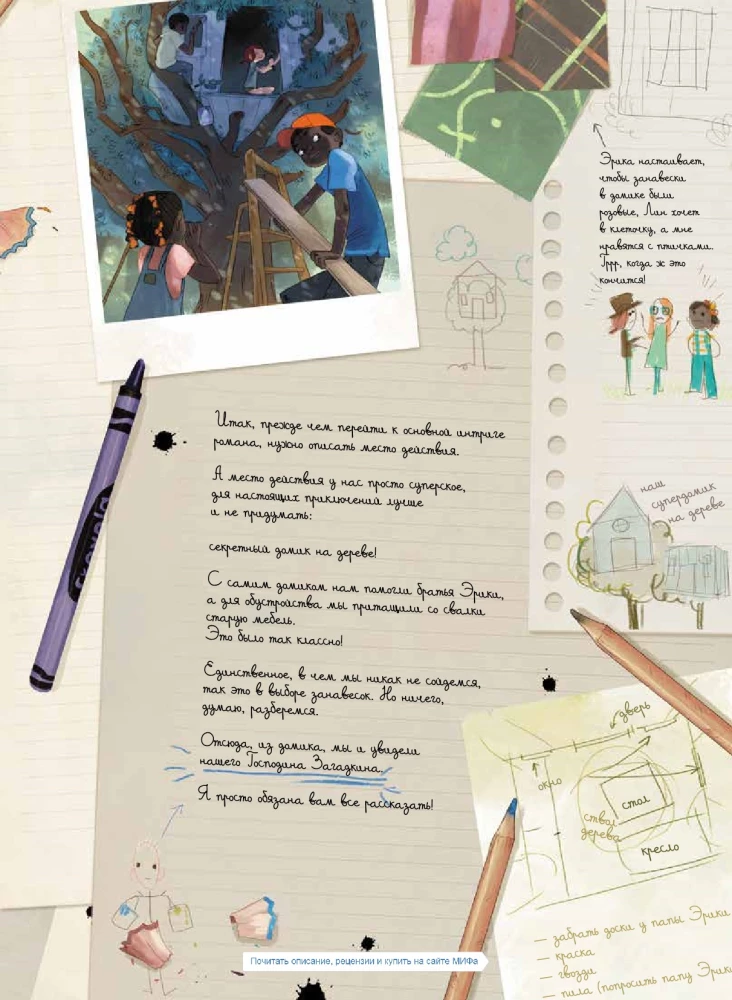 Эрика настаивает,
чтобы занавески
в домике были
розовые, Лин хочет
в клеточку, а мне
нравятся с птичками.
Гррр, когда ж это
кончится!
Итак, прежде чем перейти к основной интриге
романа, нужно описать место действия.
А место действия у нас просто суперское,
для настоящих приключений лучше
и не придумать:
секретный домик на дереве!
С самим домиком нам помогли братья Эрики,
а для обустройства мы притащили со свалки
старую мебель.
Это было так классно!
Единственное, в чем мы никак не сойдемся,
так это в выборе занавесок. Но ничего,
думаю, разберемся.
Отсюда, из домика, мы и увидели
нашего Господина Загадкина.
Я просто обязана вам все рассказать!
наш
супердомик
на дереве
дверь
окно
стол
ствол
дерева
кресло
— забрать доски у папы Эрики
— краска
— гвозди
— пила (попросить папу Эрики
Почитать описание, рецензии и купить на сайте МИФа